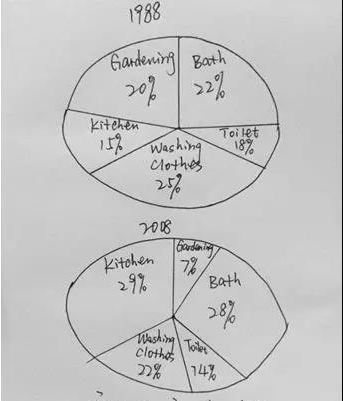 1988
Gardening
20%
Bath
22%
Kitchen
15%
Toilet
18%
Washing
clothes
25%
2008
Gardening
7%
Kitchen
29%
Bath
28%
Washing
clothes
22%
Toilet
14%